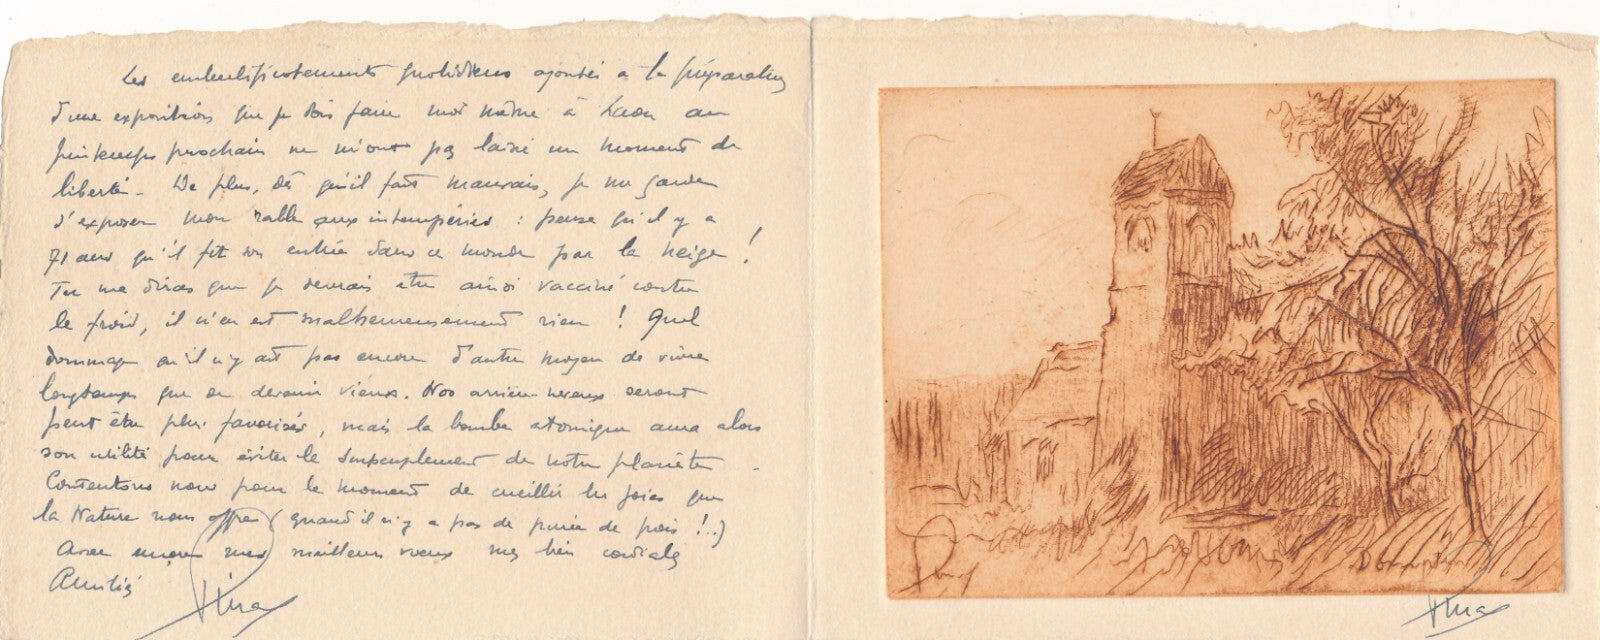 Les emberlificotements quotidiens ajoutés à la préparation
d'une exposition que je dois faire moi même à Laon au
printemps prochain ne m'ont pas laissé un moment de
liberté - De plus, dès qu'il fait mauvais, je me garde
d'exposer mon rable aux intempéries : pense qu'il y a
71 ans qu'il fit son entrée dans ce monde par la neige !
Tu me diras que je devrais être ainsi vacciné contre
le froid, il n'en est malheureusement rien ! Quel
dommage qu'il n'y ait pas encore d'autre moyen de vivre
longtemps que de devenir vieux. Nos arrière-neveux seront
peut être plus favorisés, mais la bombe atomique aura alors
son utilité pour éviter le surpeuplement de notre planète.
Contentons nous pour le moment de cueillir les joies que
la Nature nous offre (quand il n'y a pas de purée de pois !..)
Avec encore mes meilleurs vœux mes bien cordiales
Amitiés